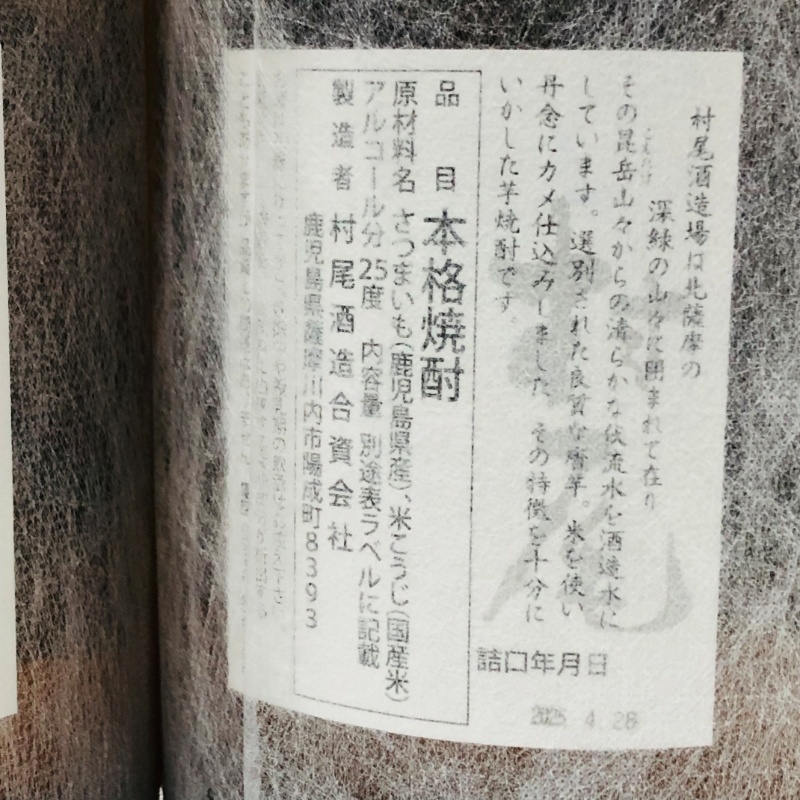 村尾酒造場は北薩摩の
深緑の山々に囲まれて在り
その昆岳山々からの清らかな伏流水を酒造水に
しています。選別された良質な唐芋。米を使い
丹念にカメ仕込みしました。その特徴を十分に
いかした芋焼酎です。
詰口年月日
2025. 4. 28
品目 本格焼酎
原材料名 さつまいも(鹿児島県産)、米こうじ(国産米)
アルコール分 25度 内容量 別途表ラベルに記載
製造者 村尾酒造合資会社
鹿児島県薩摩川内市陽成町8393